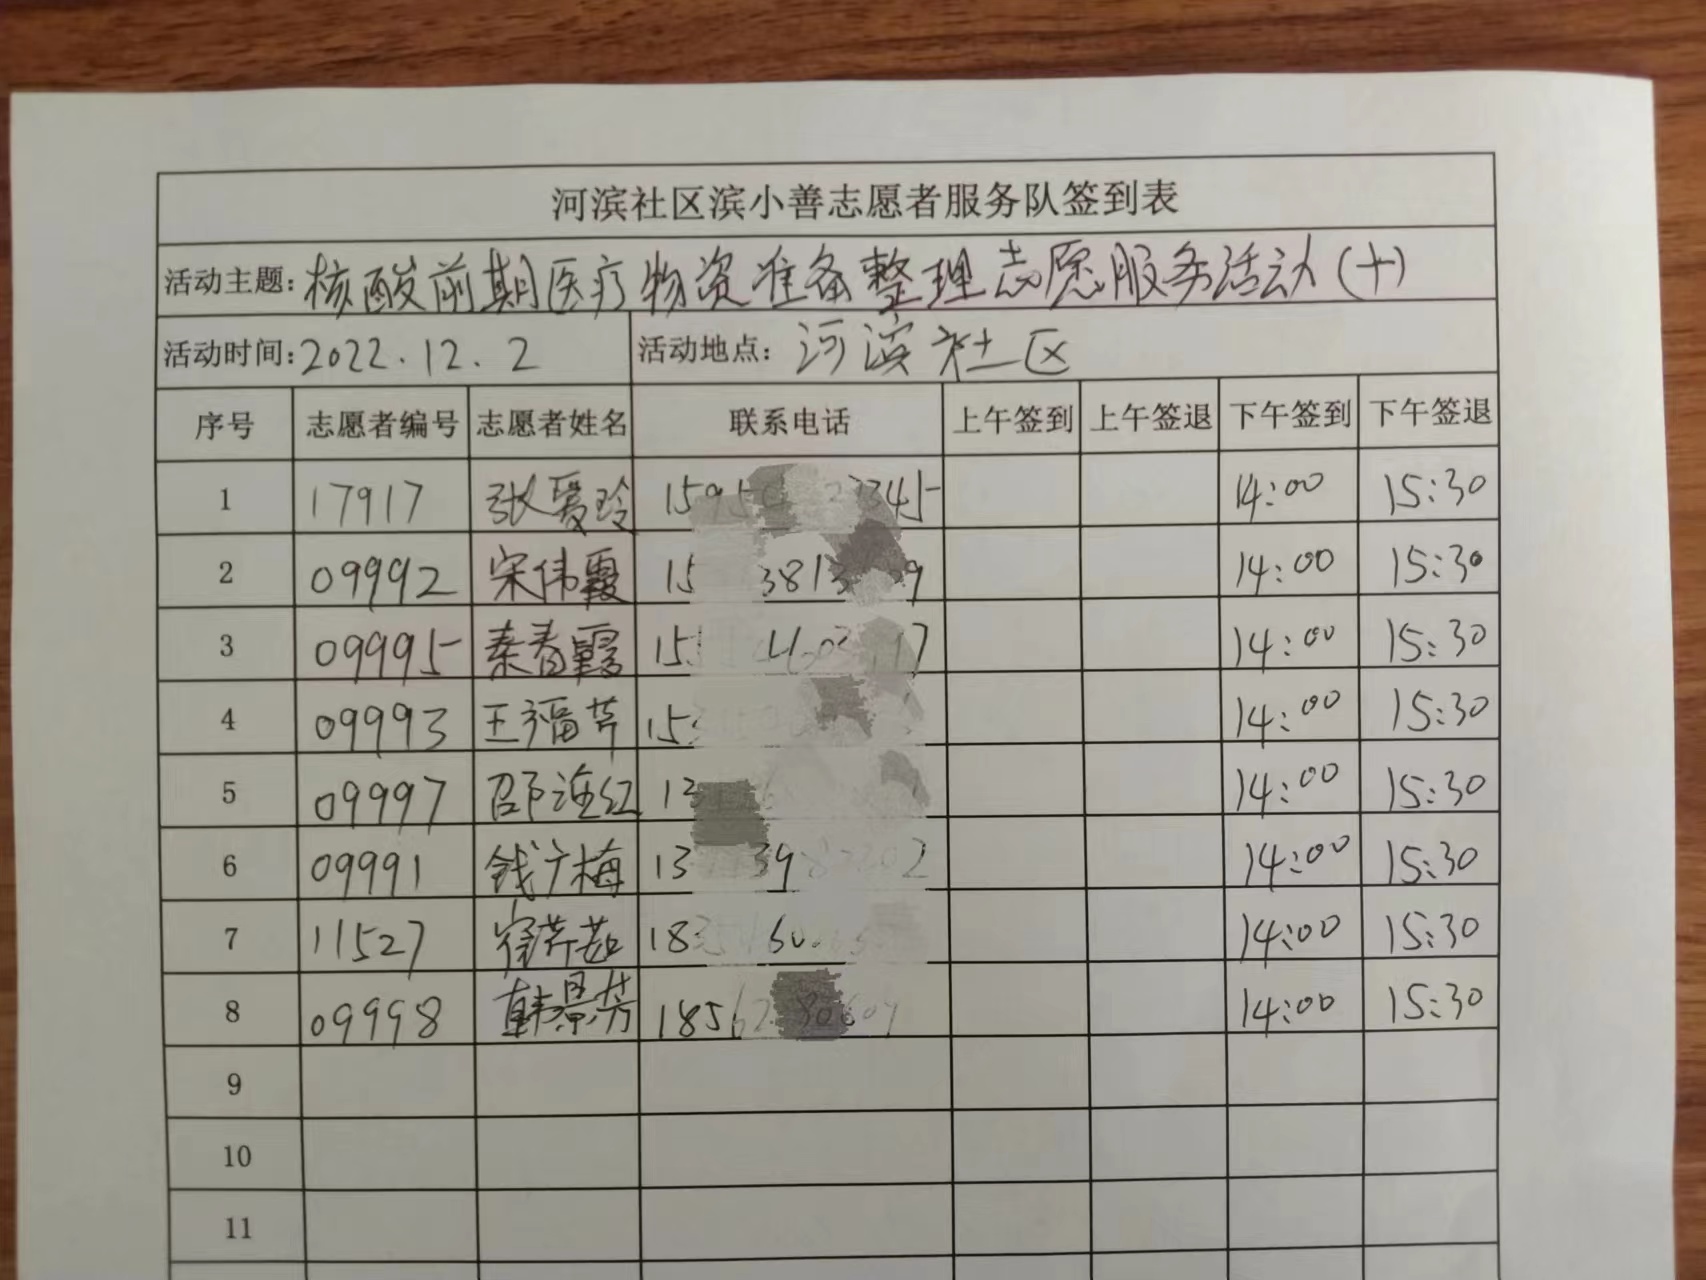 河滨社区滨小善志愿者服务队签到表
活动主题: 核酸前期医疗物资准备整理志愿服务活动(十)
活动时间: 2022.12.2 活动地点: 河滨社区
序号 志愿者编号 志愿者姓名 联系电话 上午签到 上午签退 下午签到 下午签退
1 17917 张爱玲 14:00 15:30
2 09992 宋伟霞 14:00 15:30
3 09995 秦春霞 14:00 15:30
4 09993 王福芹 14:00 15:30
5 09997 邵 红 14:00 15:30
6 09991 钱广梅 14:00 15:30
7 11527 14:00 15:30
8 09998 韩景芳 14:00 15:30
9
10
11